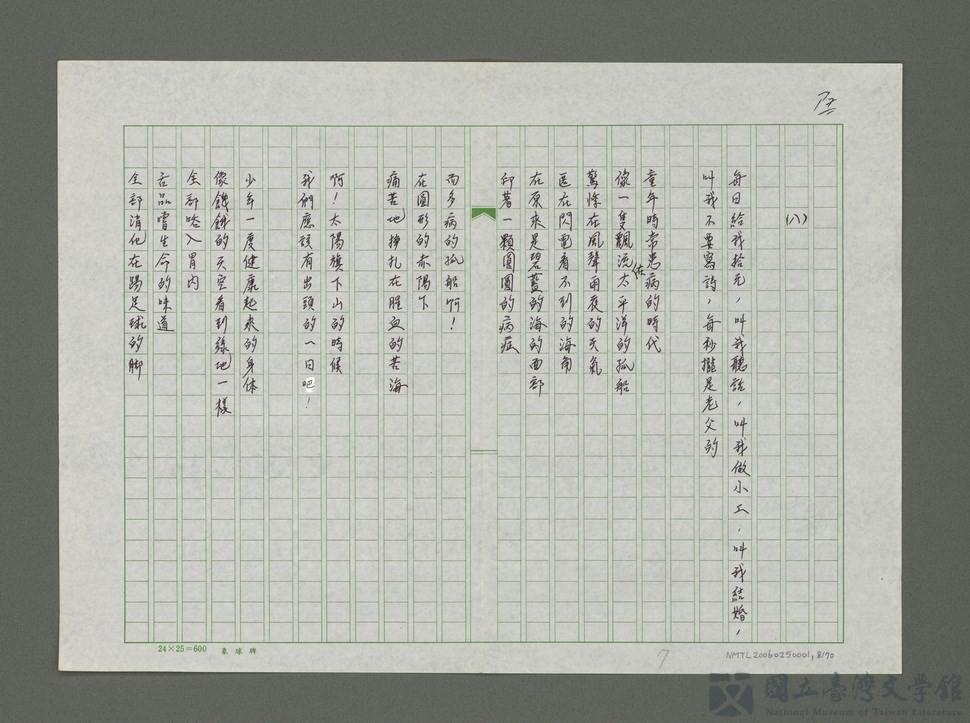 (八)
每日給我拾元，叫我聽話，叫我做小工，叫我結婚，
叫我不要寫詩，每秒攏是老父的
童年時常患病的時代
像一隻飄流在太平洋的孤船
驚惶在風聲雨夜的天氣
匿在閃電看不到的海角
在原來是碧藍的海的西部
印著一顆圓圓的病症
而多病的孤船啊！
在圓形的赤陽下
痛苦地掙扎在腥血的苦海
啊！太陽旗下山的時候
我們應該有出頭的一日吧！
少年一度健康起來的身体
像饑餓的天空看到綠地一樣
全部吞入胃內
去品嚐生命的味道
全部消化在踢足球的腳
24×25=600 象球牌
7
NMTL20060250001, 8/70
國立臺灣文學館
National Museum of Taiwan Literature